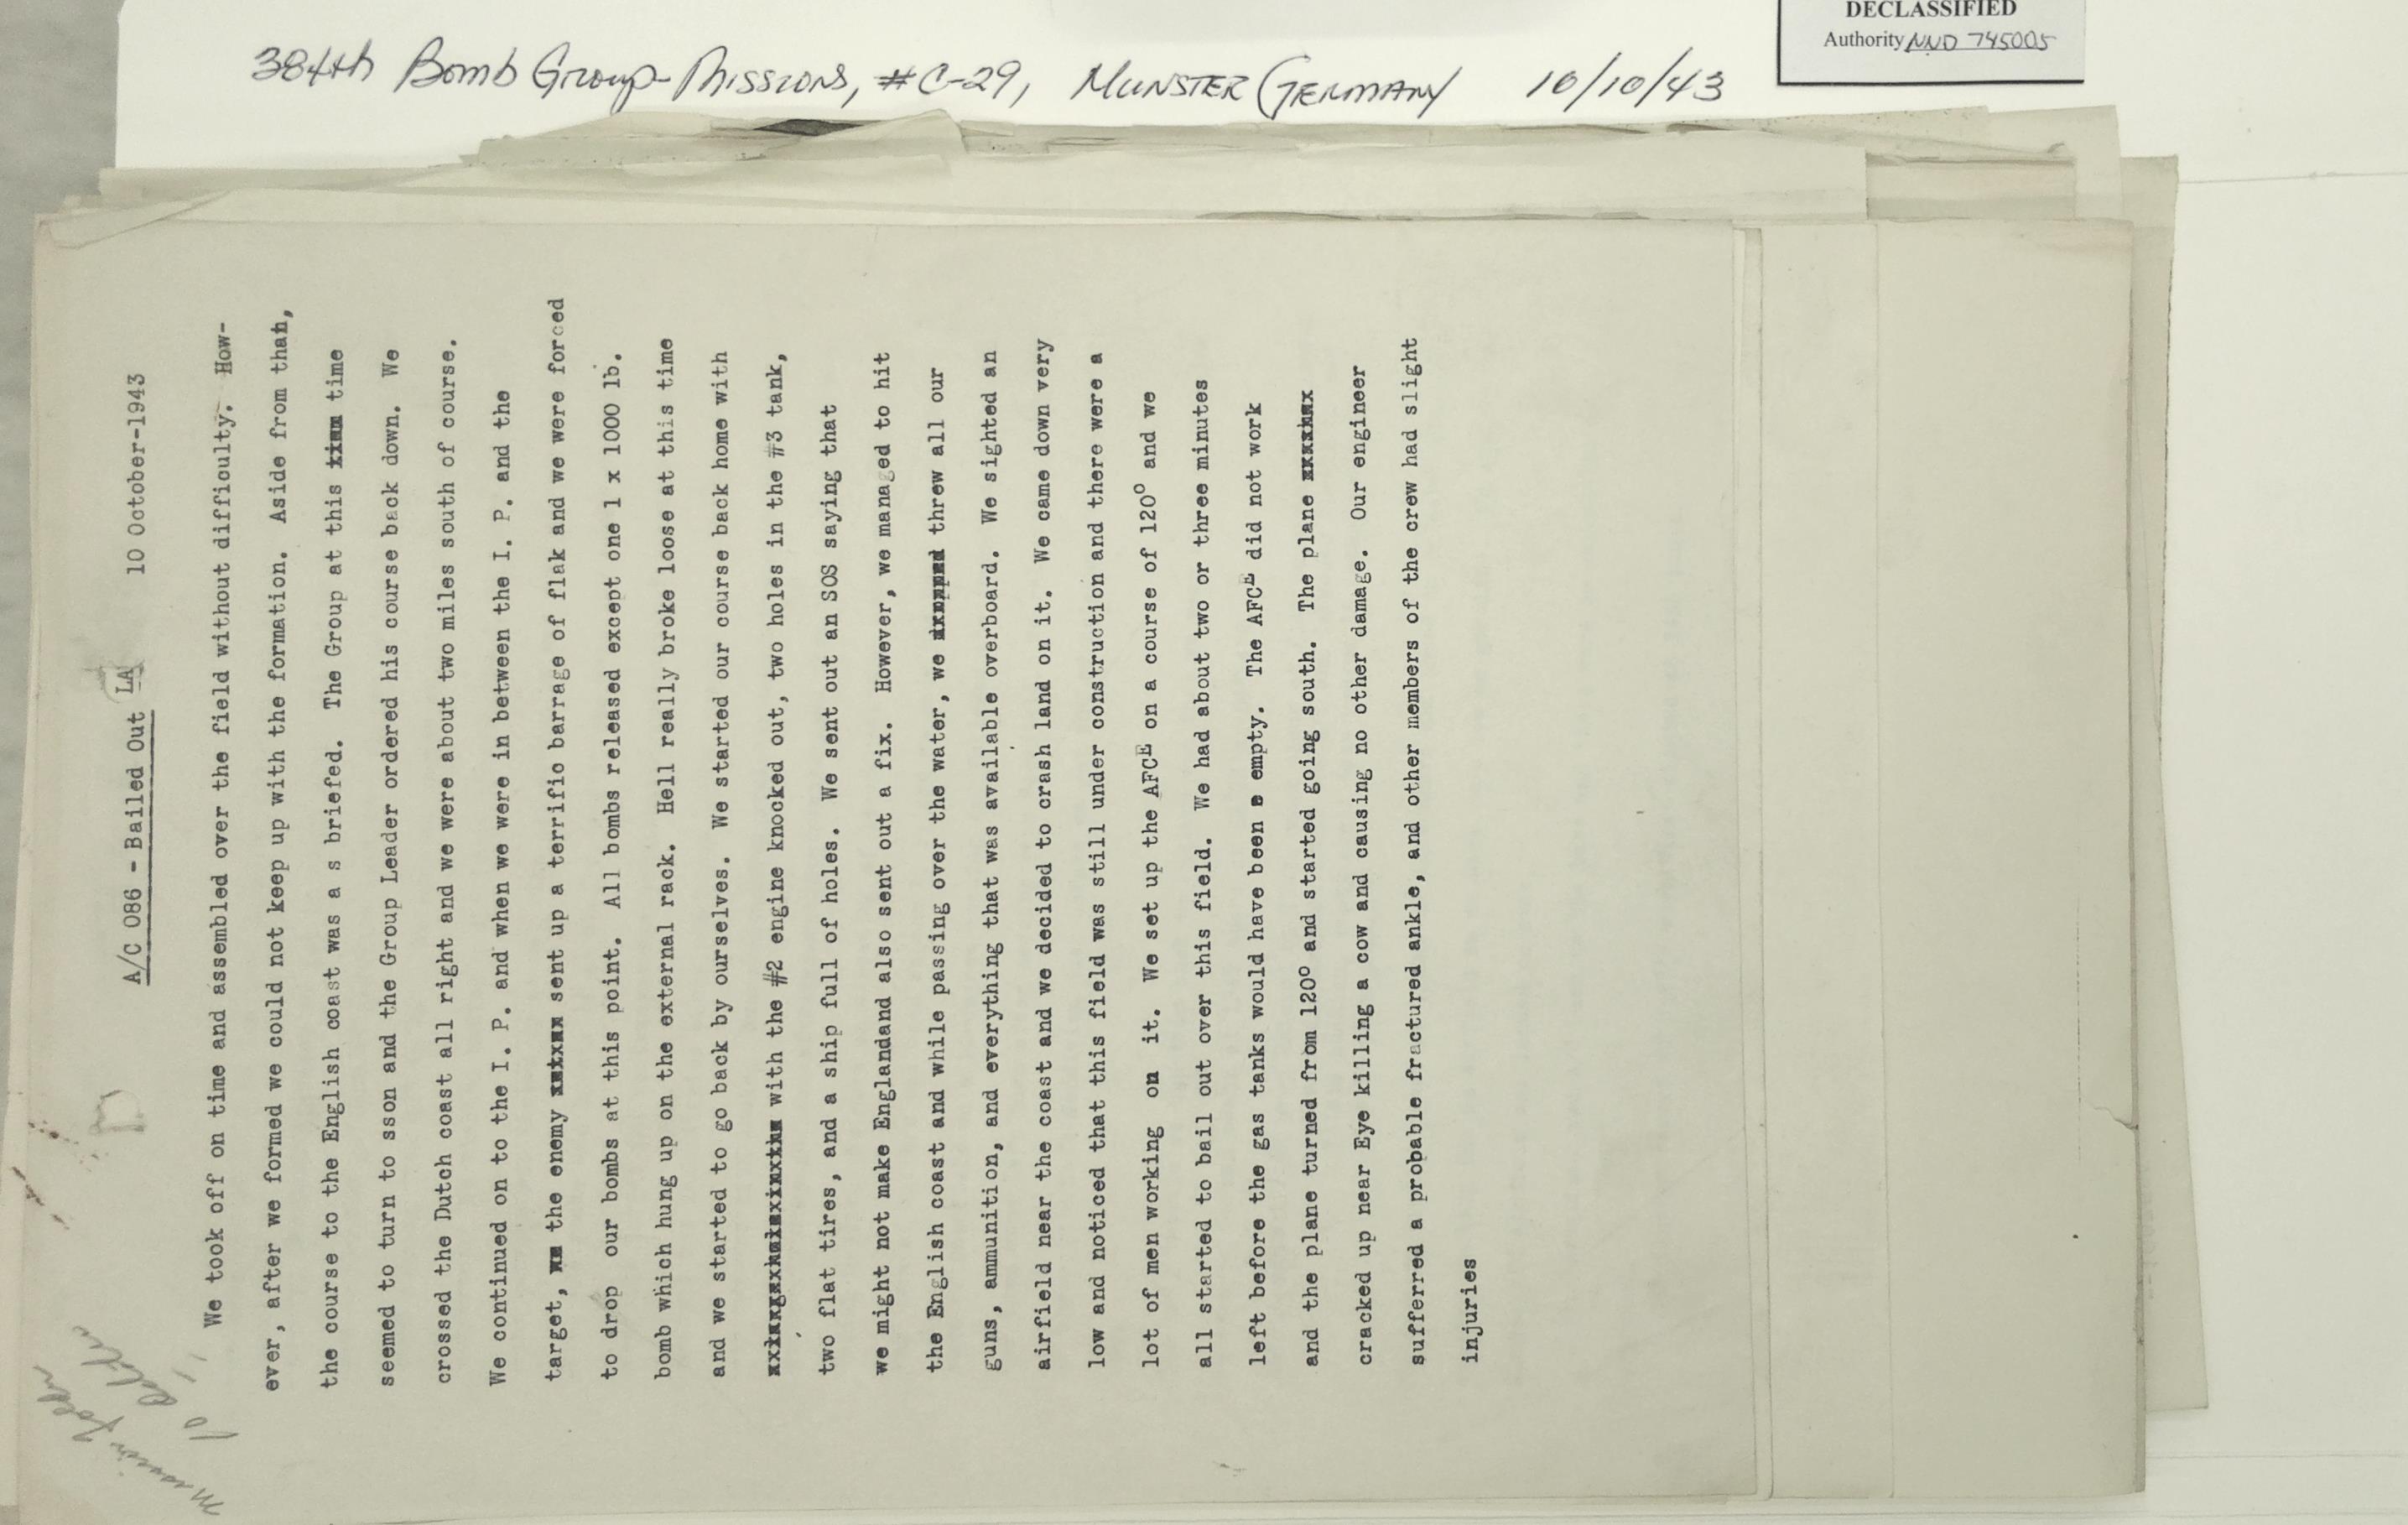 DECLASSIFIED
Authority NND 745005
384th Bomb Group-Missions, #C-29, Munster Germany 10/10/43
A/C 086 - Bailed Out LA 10 October-1943
We took off on time and assembled over the field without difficulty. How-
ever, after we formed we could not keep up with the formation. Aside from that,
the course to the English coast was a s briefed. The Group at this time
seemed to turn to sson and the Group Leader ordered his course back down. We
crossed the Dutch coast all right and we were about two miles south of course.
We continued on to the I. P. and when we were in between the I. P. and the
target, the enemy sent up a terrific barrage of flak and we were forced
to drop our bombs at this point. All bombs released except one 1 x 1000 lb.
bomb which hung up on the external rack. Hell really broke loose at this time
and we started to go back by ourselves. We started our course back home with
with the #2 engine knocked out, two holes in the #3 tank,
two flat tires, and a ship full of holes. We sent out an SOS saying that
we might not make Englandand also sent out a fix. However, we managed to hit
the English coast and while passing over the water, we threw all our
guns, ammunition, and everything that was available overboard. We sighted an
airfield near the coast and we decided to crash land on it. We came down very
low and noticed that this field was still under construction and there were a
lot of men working on it. We set up the AFCE on a course of 120° and we
all started to bail out over this field. We had about two or three minutes
left before the gas tanks would have been e empty. The AFCE did not work
and the plane turned from 120° and started going south. The plane
cracked up near Eye killing a cow and causing no other damage. Our engineer
sufferred a probable fractured ankle, and other members of the crew had slight
injuries